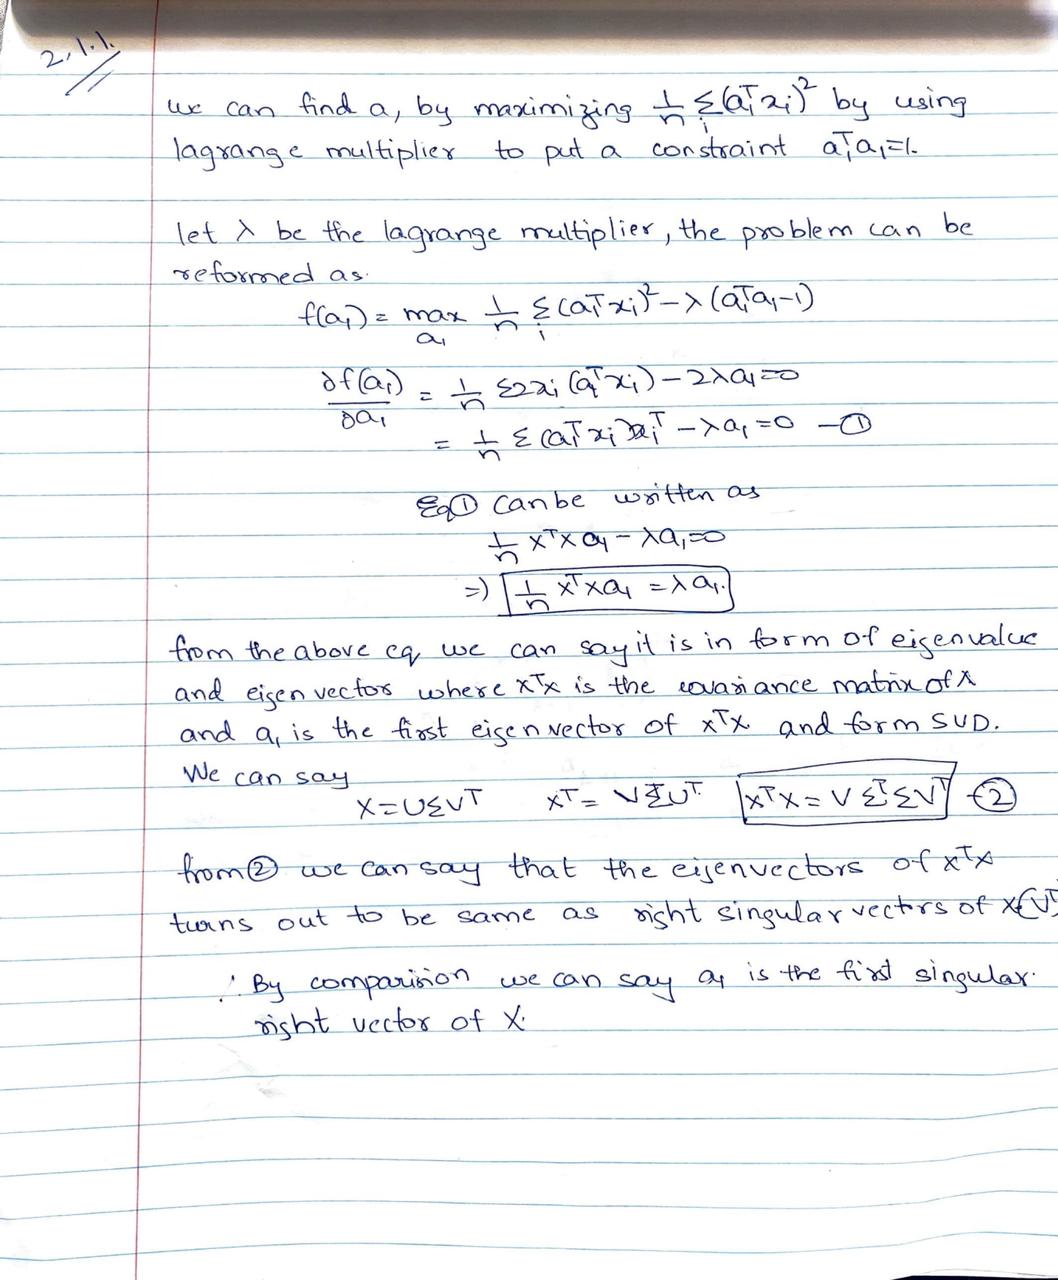 2.1.1.
we can find a₁ by maximizing 1/n Σᵢ(a₁ᵀxᵢ)² by using
lagrange multiplier to put a constraint a₁ᵀa₁=1.
let λ be the lagrange multiplier, the problem can be
reformed as.
f(a₁) = max_{a₁} 1/n Σᵢ(a₁ᵀxᵢ)² - λ(a₁ᵀa₁-1)
∂f(a₁)/∂a₁ = 1/n Σ2xᵢ(a₁ᵀxᵢ) - 2λa₁=0
= 1/n Σ(a₁ᵀxᵢ)xᵢᵀ - λa₁=0 -①
Eq① can be written as
1/n XᵀXa₁ - λa₁=0
=) 1/n XᵀXa₁ = λa₁.
from the above eq we can say it is in form of eigenvalue
and eigen vector where XᵀX is the covariance matrix of X
and a₁ is the first eigen vector of XᵀX and form SVD.
We can say
X=UΣVᵀ Xᵀ= VΣᵀUᵀ XᵀX= VΣᵀΣVᵀ -②
from ② we can say that the eigenvectors of XᵀX
turns out to be same as right singular vectrs of X(Vᵀ)
∴ By comparision we can say a₁ is the first singular
right vector of X.